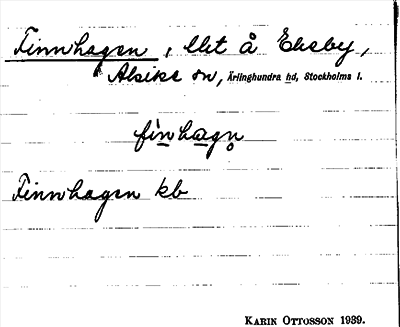 Finnhagen, llt å Ekeby,
Alsike sn, Ärlinghundra hd, Stockholms l.
finhagn̥
Finnhagen kb
KARIN OTTOSSON 1939.